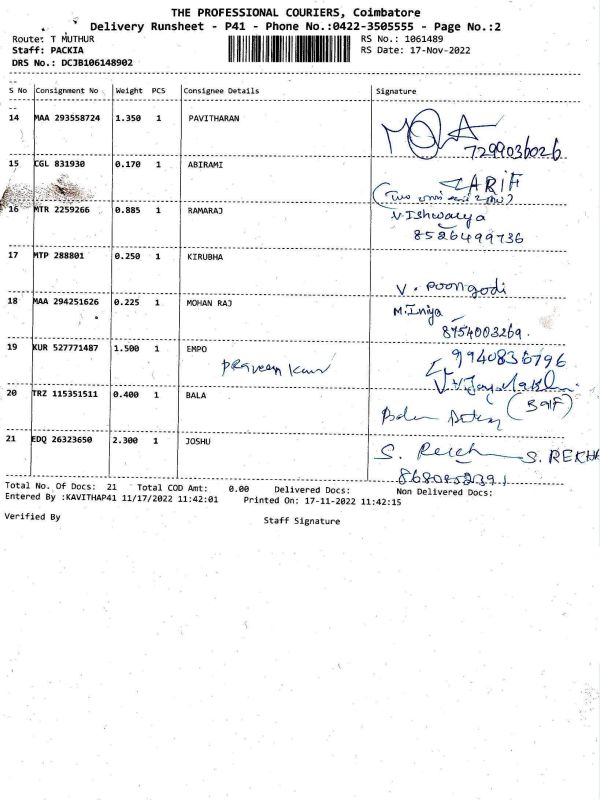 THE PROFESSIONAL COURIERS, Coimbatore
Delivery Runsheet - P41 - Phone No.:0422-3505555 - Page No.:2
Route: T MUTHUR
RS No.: 1061489
Staff: PACKIA
RS Date: 17-Nov-2022
DRS No.: DCJB106148902
S No Consignment No Weight PCS Consignee Details Signature
14 MAA 293558724 1.350 1 PAVITHARAN
7299036026
15 CGL 831930 0.170 1 ABIRAMI
ZARIF
16 MTR 2259266 0.885 1 RAMARAJ V. Ishwarya
8526499736
17 MTP 288801 0.250 1 KIRUBHA
V. Poongodi
18 MAA 294251626 0.225 1 MOHAN RAJ M. Iniya
8754003269.
19 KUR 527771487 1.500 1 EMPO 9940836796
Praveen
20 TRZ 115351511 0.400 1 BALA
21 EDQ 26323650 2.300 1 JOSHU
S. S. REKHA
Total No. Of Docs: 21 Total COD Amt: 0.00 Delivered Docs: Non Delivered Docs:
Entered By :KAVITHAP41 11/17/2022 11:42:01 Printed On: 17-11-2022 11:42:15
Verified By
Staff Signature